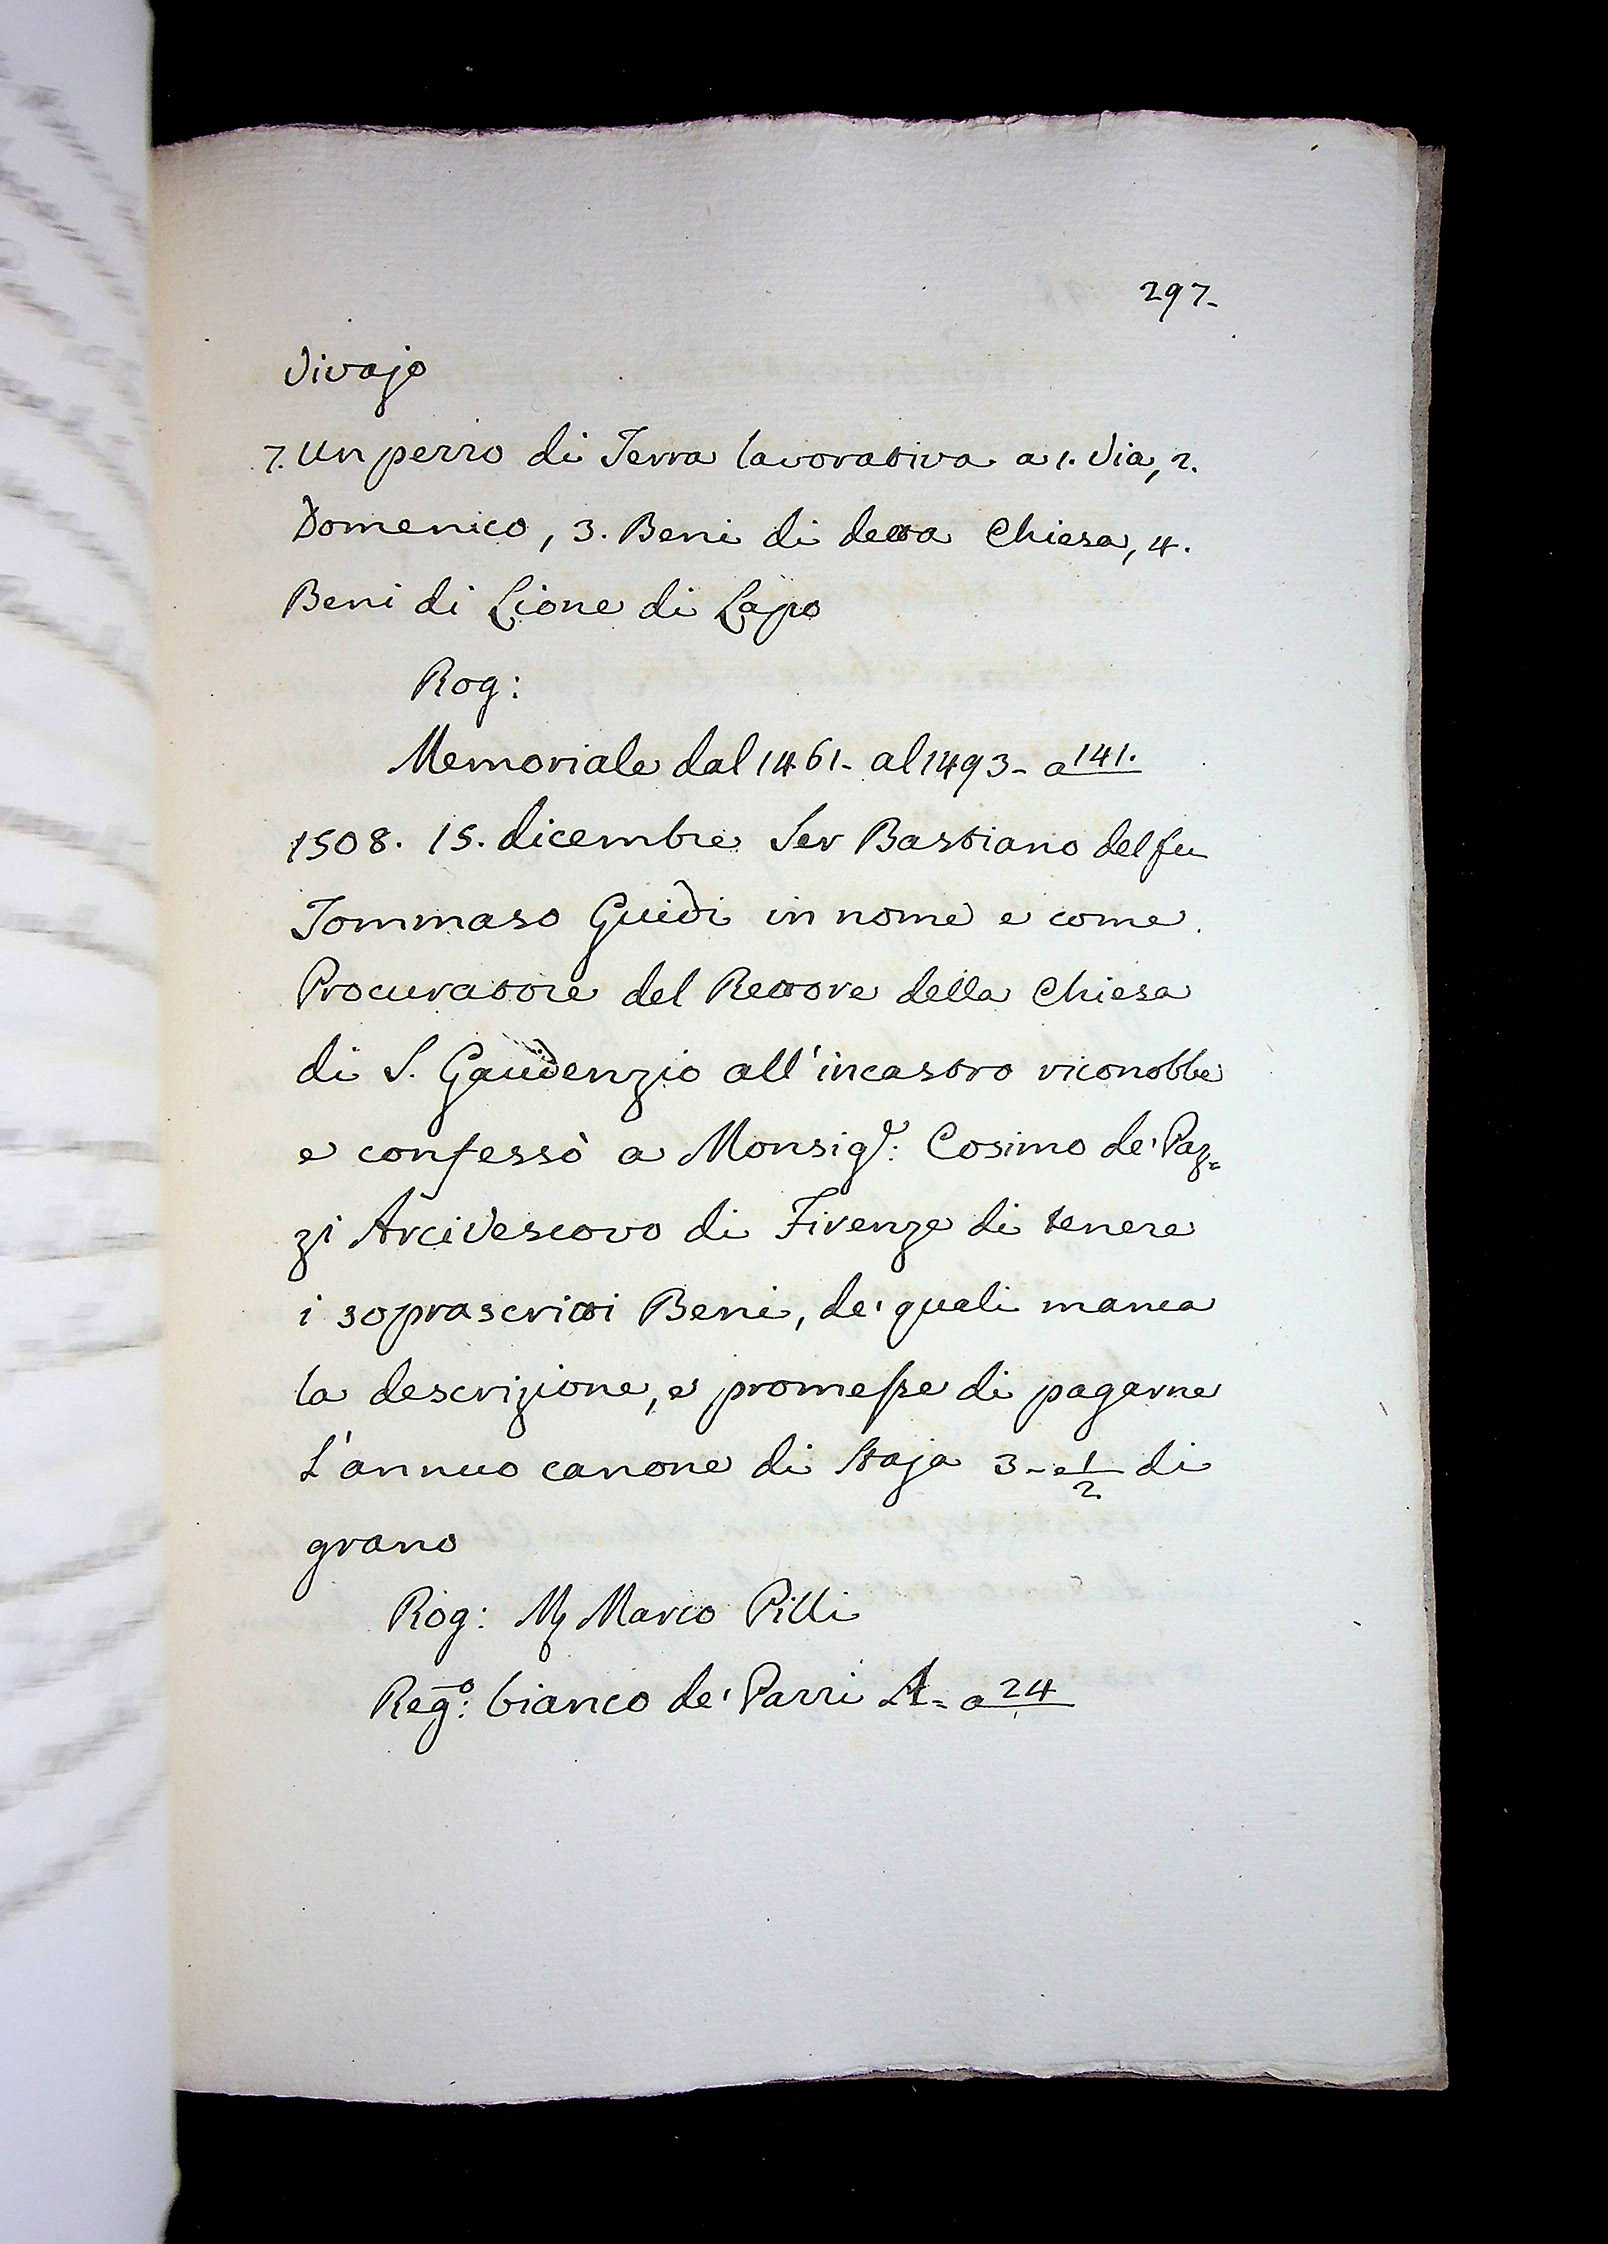 297.
Vivajo
7. Un pezzo di Terra lavorativa a 1. Via, 2.
Domenico, 3. Beni di detta Chiesa, 4.
Beni di Lione di Lapo
Rog:
Memoriale dal 1461- al 1493- a 141.
1508. 15. dicembre Ser Bastiano del fu
Tommaso Guidi in nome e come
Procuratore del Rettore della Chiesa
di S. Gaudenzio all'incastro riconobbe
e confessò a Monsigr: Cosimo de' Paz=
zi Arcivescovo di Firenze di tenere
i soprascritti Beni, de' quali manca
la descrizione, e promesse di pagarne
L'annuo canone di Staja 3- e 1/2 di
grano
Rog: Marco Pilli
Rego: bianco de' Pazzi A= a 24